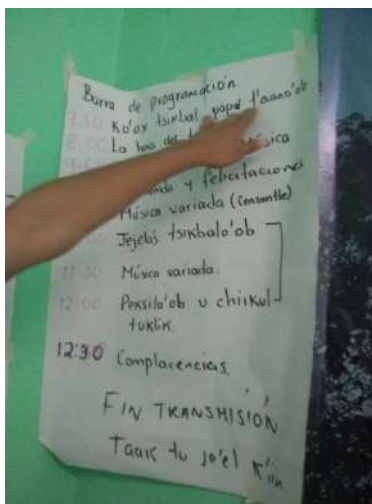 Barra de programación
7:30 Ko'ox tsikbal popol t'aano'ob
8:00 La hora del
música
y felicitaciones
Música variada (Cenzontle)
Jejelás tsikbalo'ob
11:30 Música variada.
12:00 Peksilo'ob u chiikul
tuklik
12:30 Complacencias
FIN TRANSMISIÓN
Taak tu jo'el k'iin